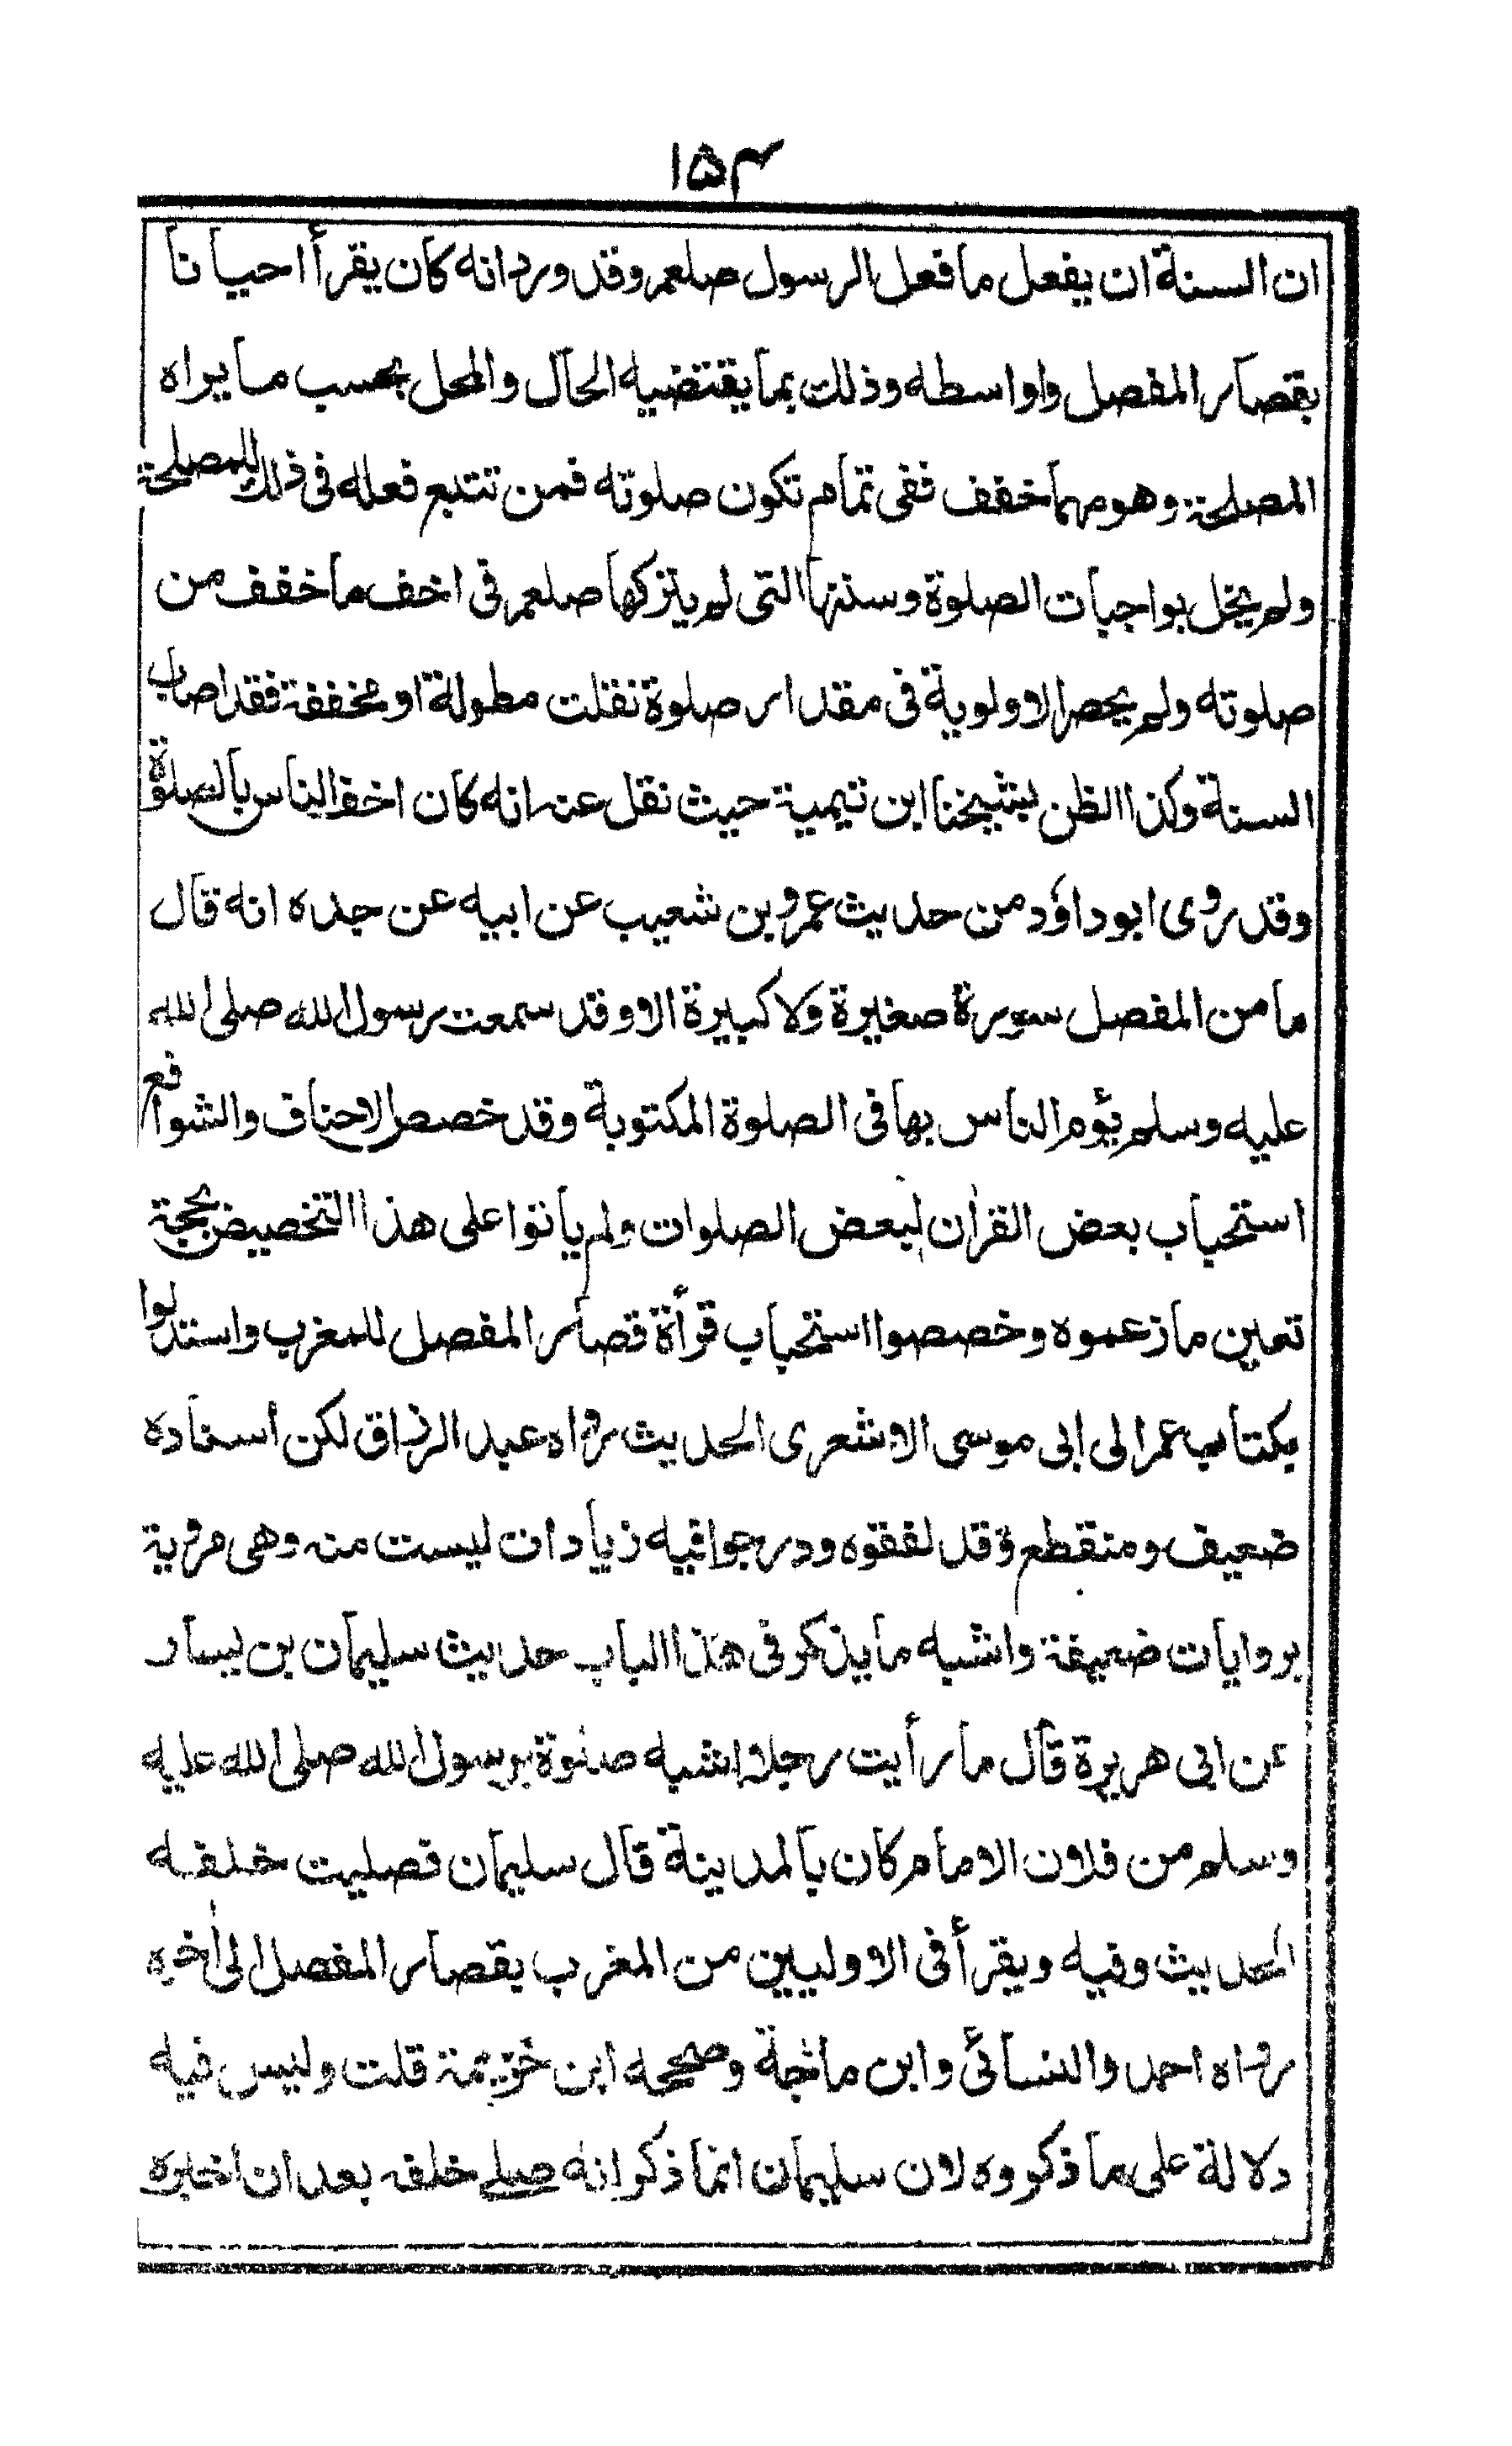 ١٥٤
ان السنة ان يفعل ما فعل الرسول صلعم وقد ورد انه كان يقرأ احيانا
بقصار المفصل واواسطه وذلك بما يقتضيه الحال والمحل بحسب ما يراه
المصلحة وهو مهما خفف ففى تمام تكون صلوته فمن تتبع فعله فى ذلك للمصلحة
ولم يخل بواجبات الصلوة وسننها التى لم يتركها صلعم فى اخف ما خفف من
صلوته ولم يحصر الاولوية فى مقدار صلوة نقلت مطولة او مخففة فقد اصاب
السنة وكذا الظن بشيخنا ابن تيمية حيث نقل عنه انه كان اخف الناس بالصلوة
وقد روى ابو داؤد من حديث عمرو بن شعيب عن ابيه عن جده انه قال
ما من المفصل سورة صغيرة ولا كبيرة الا وقد سمعت رسول الله صلى الله
عليه وسلم يؤم الناس بها فى الصلوة المكتوبة وقد خصص الاحناف والشوافع
استحباب بعض القران لبعض الصلوات ولم يأتوا على هذا التخصيص بحجة
تعين ما زعموه وخصصوا استحباب قرأة قصار المفصل للمغرب واستدلوا
بكتاب عمر الى ابى موسى الاشعرى الحديث رواه عبد الرزاق لكن أسناده
ضعيف ومنقطع وقد لفقوه ودرجوا فيه زيادات ليست منه وهى مروية
بروايات ضعيفة واشبه ما يذكر فى هذا الباب حديث سليمان بن يسار
عن ابى هريرة قال ما رأيت رجلا اشبه صلوة برسول الله صلى الله عليه
وسلم من فلان الامام كان بالمدينة قال سليمان فصليت خلفه
الحديث وفيه ويقرأ فى الاوليين من المغرب بقصار المفصل الى أخره
رواه احمد والنسائى وابن ماجة وصححه ابن خزيمة قلت وليس فيه
دلالة على ما ذكروه لان سليمان انما ذكر انه صلے خلفه بعد ان اخبره